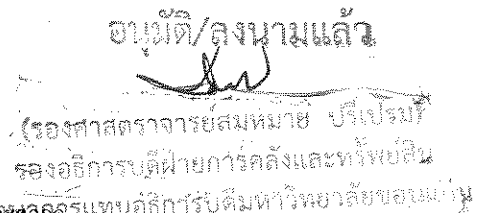 อนุมัติ/ลงนามแล้ว
(รองศาสตราจารย์สมหมาย ปรีเปรม)
รองอธิการบดีฝ่ายการคลังและทรัพย์สิน
แทนอธิการบดีมหาวิทยาลัยขอนแก่น